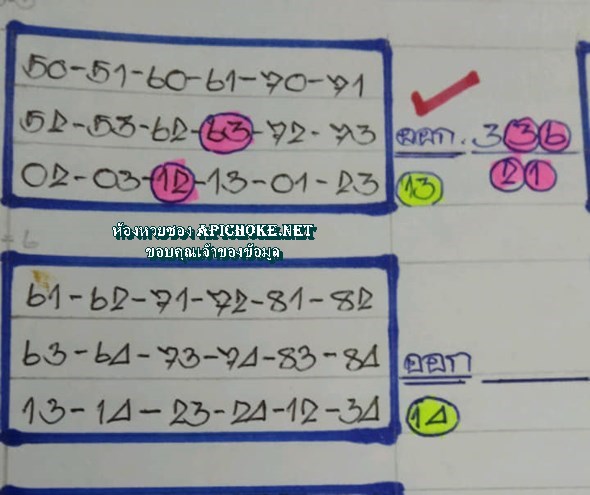 50-51-60-61-70-71
52-53-62-63-72-73
ออก. 336
02-03-12-13-01-23
13
21
ห้องหวยซอง APICHOKE.NET
ขอบคุณเจ้าของข้อมูล
61-62-71-72-81-82
63-64-73-74-83-84
ออก
13-14-23-24-12-34
14